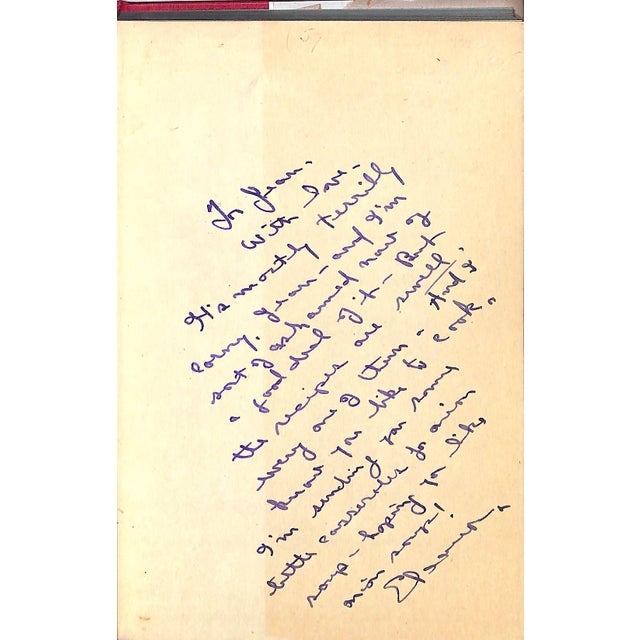 To Jean -
with love -
It's mostly terribly
corny, Jean - and I'm
sort of ashamed now of
a good deal of it - But
the recipes are swell
every one of them - And I
know you like to cook -
I'm sending you some
little casseroles for onion
soup - hoping you like
onion soup!